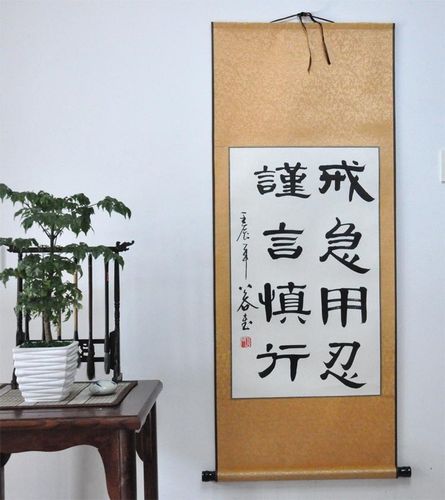 戒急用忍
謹言慎行
壬辰年 八谷書